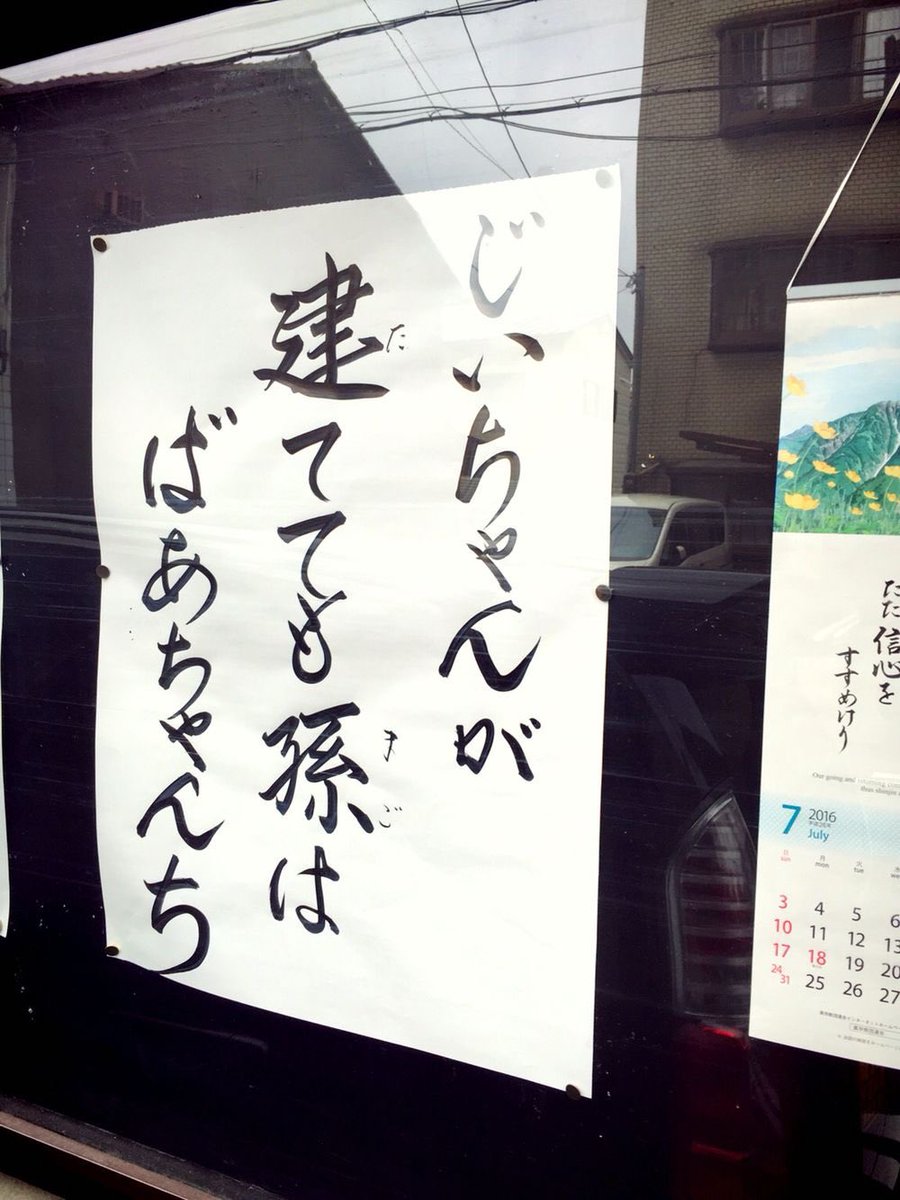 じいちゃんが
建てても孫は
たまご
ばあちゃんち
ただ信心を
すすめけり
Our going and
7
2016
July
日 月 火
sun mon tue
3 4 5 6
10 11 12 13
17 18 19 20
24 25 26 27
31